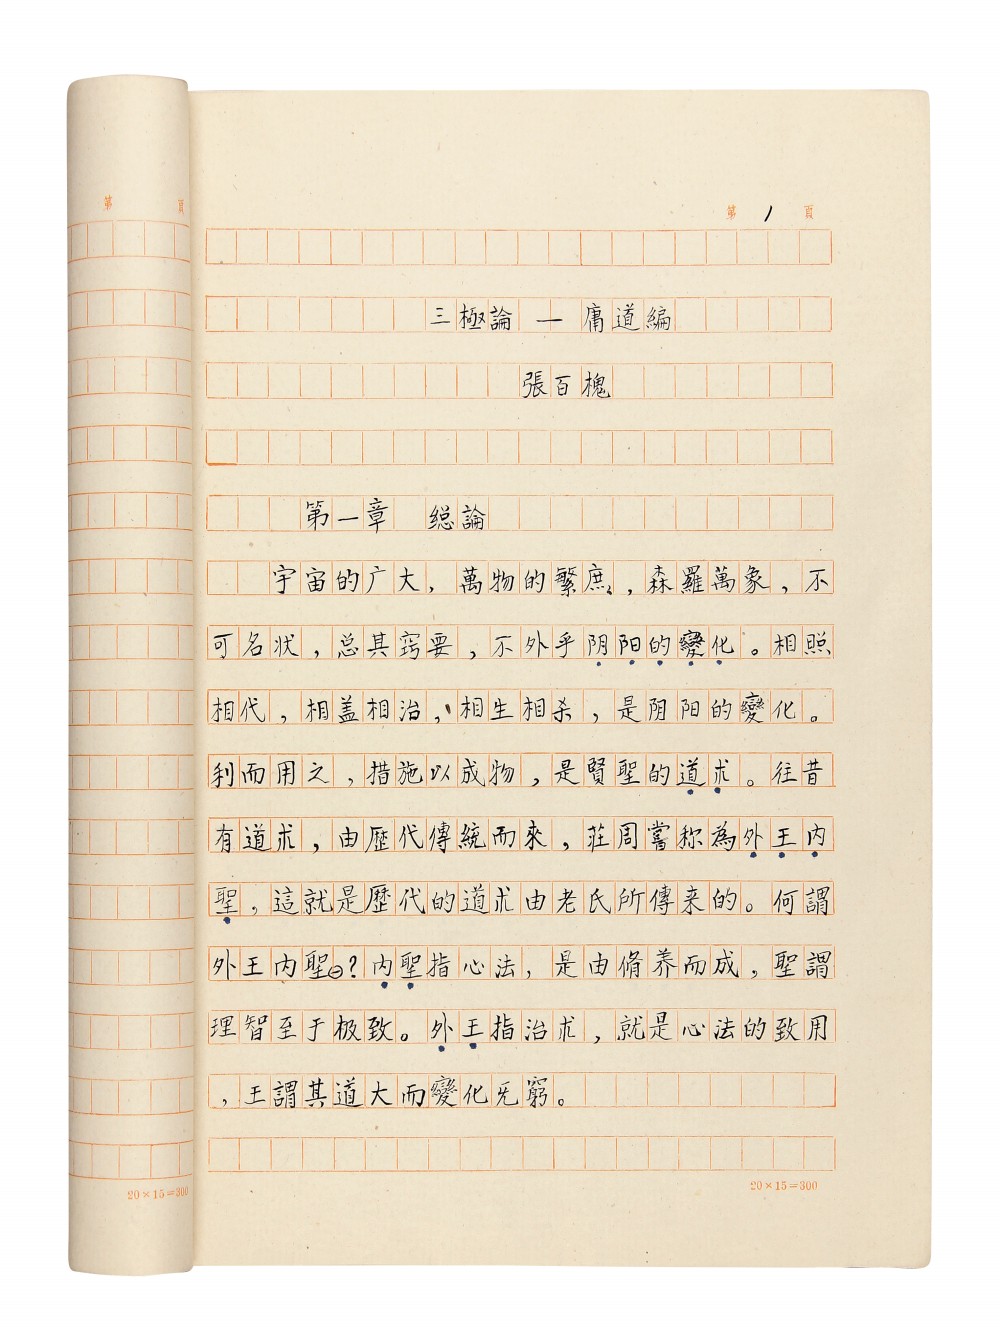 第 頁
第 1 頁
三極論 — 庸道編
張百槐
第一章 総論
宇宙的广大，萬物的繁庶，森羅萬象，不
可名状，总其窍要，不外乎阴阳的變化。相照
相代，相盖相治，相生相杀，是阴阳的變化。
利而用之，措施以成物，是賢聖的道术。往昔
有道术，由歷代傳統而來，莊周嘗称為外王内
聖，這就是歷代的道术由老氏所傳来的。何謂
外王内聖？内聖指心法，是由脩养而成，聖謂
理智至于极致。外王指治术，就是心法的致用
，王謂其道大而變化旡窮。
20×15=300
20×15=300